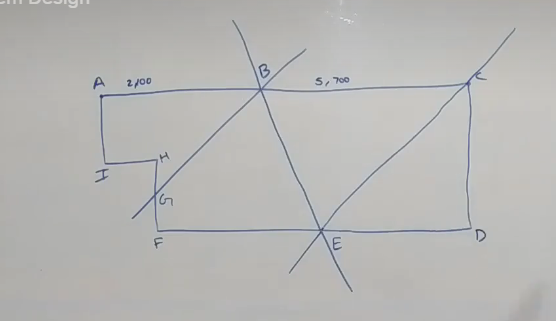 em Design
A 2,100 B 5,700 C
I H
G
F E D